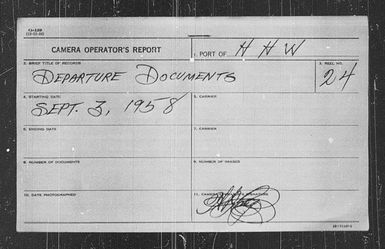 G-159
CAMERA OPERATOR'S REPORT
1. PORT OF HHW
2. BRIEF TITLE OF RECORDS
DEPARTURE DOCUMENTS
3. REEL NO.
24
4. STARTING DATE
SEPT. 3, 1958
5. CARRIER
6. ENDING DATE
7. CARRIER
8. NUMBER OF DOCUMENTS
9. NUMBER OF IMAGES
10. DATE PHOTOGRAPHED
11. CAMERA OPERATOR'S SIGNATURE